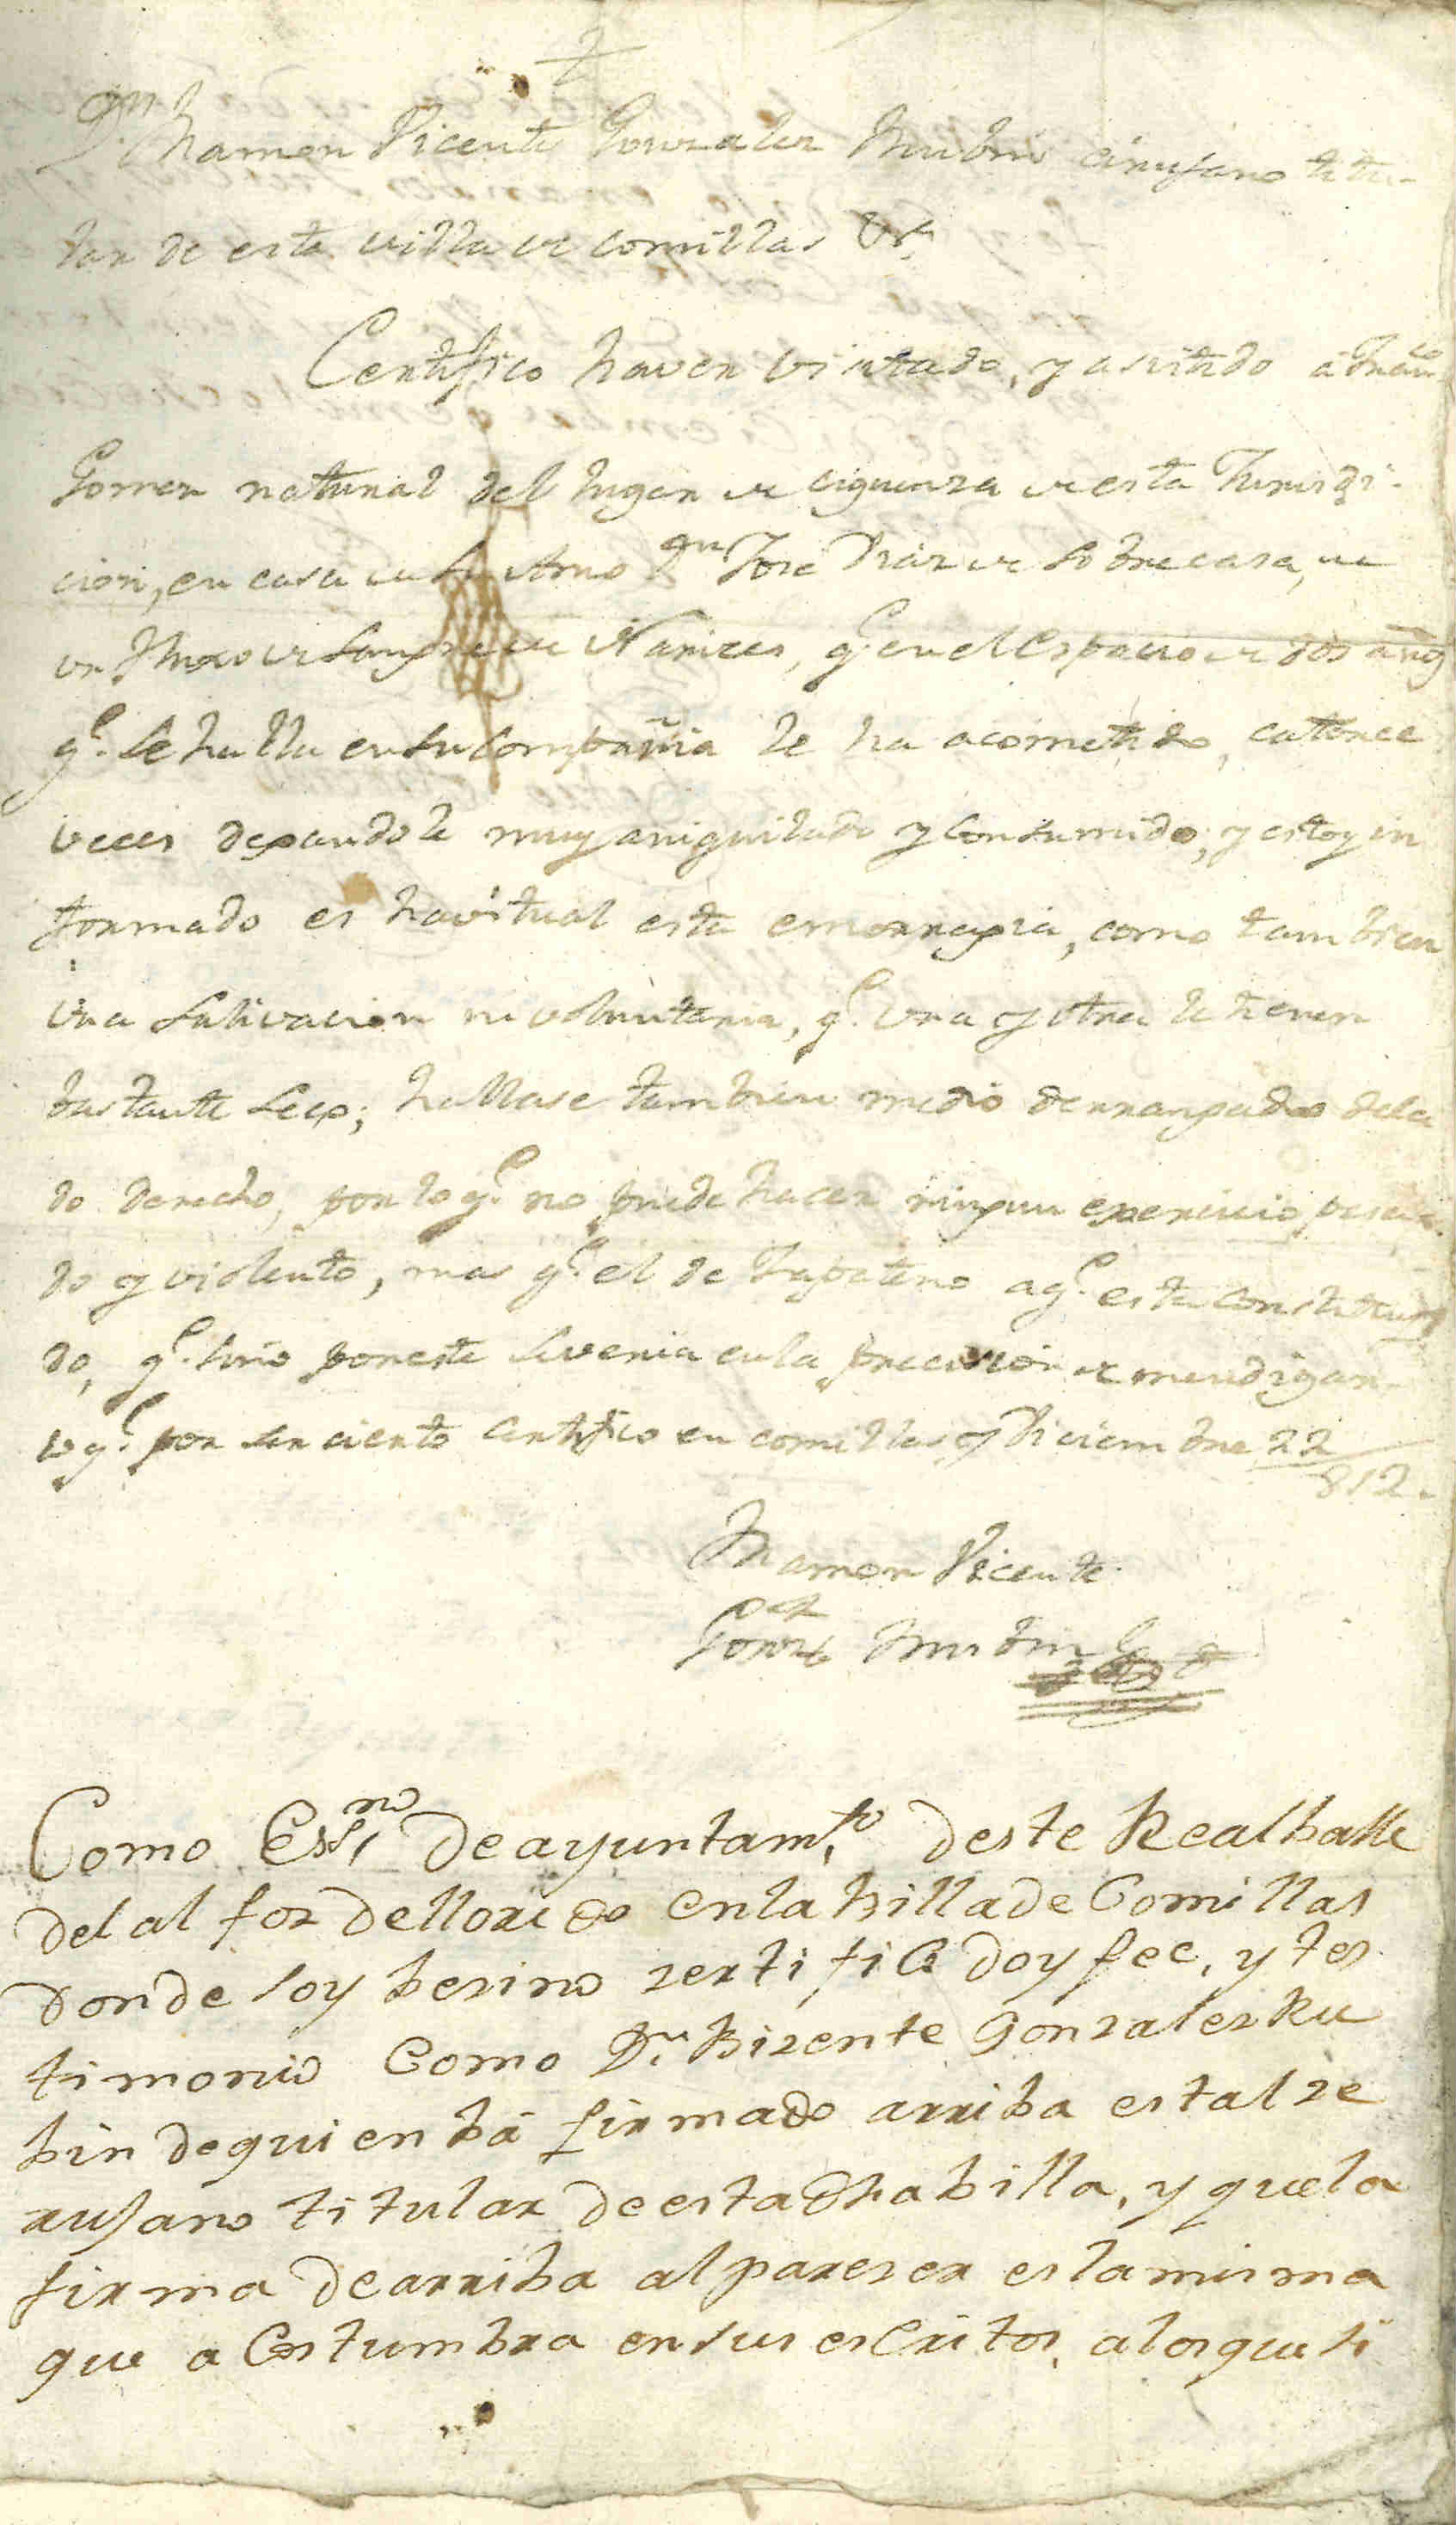 ✝
Dn. Ramon Vicente Gonzalez Rubin cirujano titu-
lar de esta villa de comillas &c.
Certifico haver visitado, y asistido á Franco.
Gomez natural del lugar de ciguenza de esta Jurisdi-
cion, en casa de su Amo Dn. Jose Diaz de Sobrecasa, de
un fluxo de sangre de Narizes, qe. en el espacio de dos años
qe. se halla en su compañia le ha acometido, catorce
veces dexandole muy aniquilado y consumido; y estoy in
formado es havitual esta emorragia, como tambien
una salivacion involuntaria, qe. una y otra le tienen
bastante seco; hallase tambien medio derrangado del la
do derecho, por lo qe. no puede hacer ningun exercicio pesa-
do y violento, mas qe. el de Zapatero a qe. esta constituy
do, qe. sino por este se veria en la precision de mendigar.
lo qe. por ser cierto certifico en comillas y Diciembre 22
812.
Ramon Vicente
Gonzalez Rubin
Como Essno. de ayuntamto. deste Real balle
del al foz de lloredo en la billa de Comillas
donde soy besino zertifico doy fee, y tes
timonio Como Dn. Bizente Gonzales Ru
bin de quien bá firmado arriba es tal ze
rujano titular de esta dha billa, y que la
firma de arriba al pareser es la misma
que a Costumbra en sus escritos, a los que si